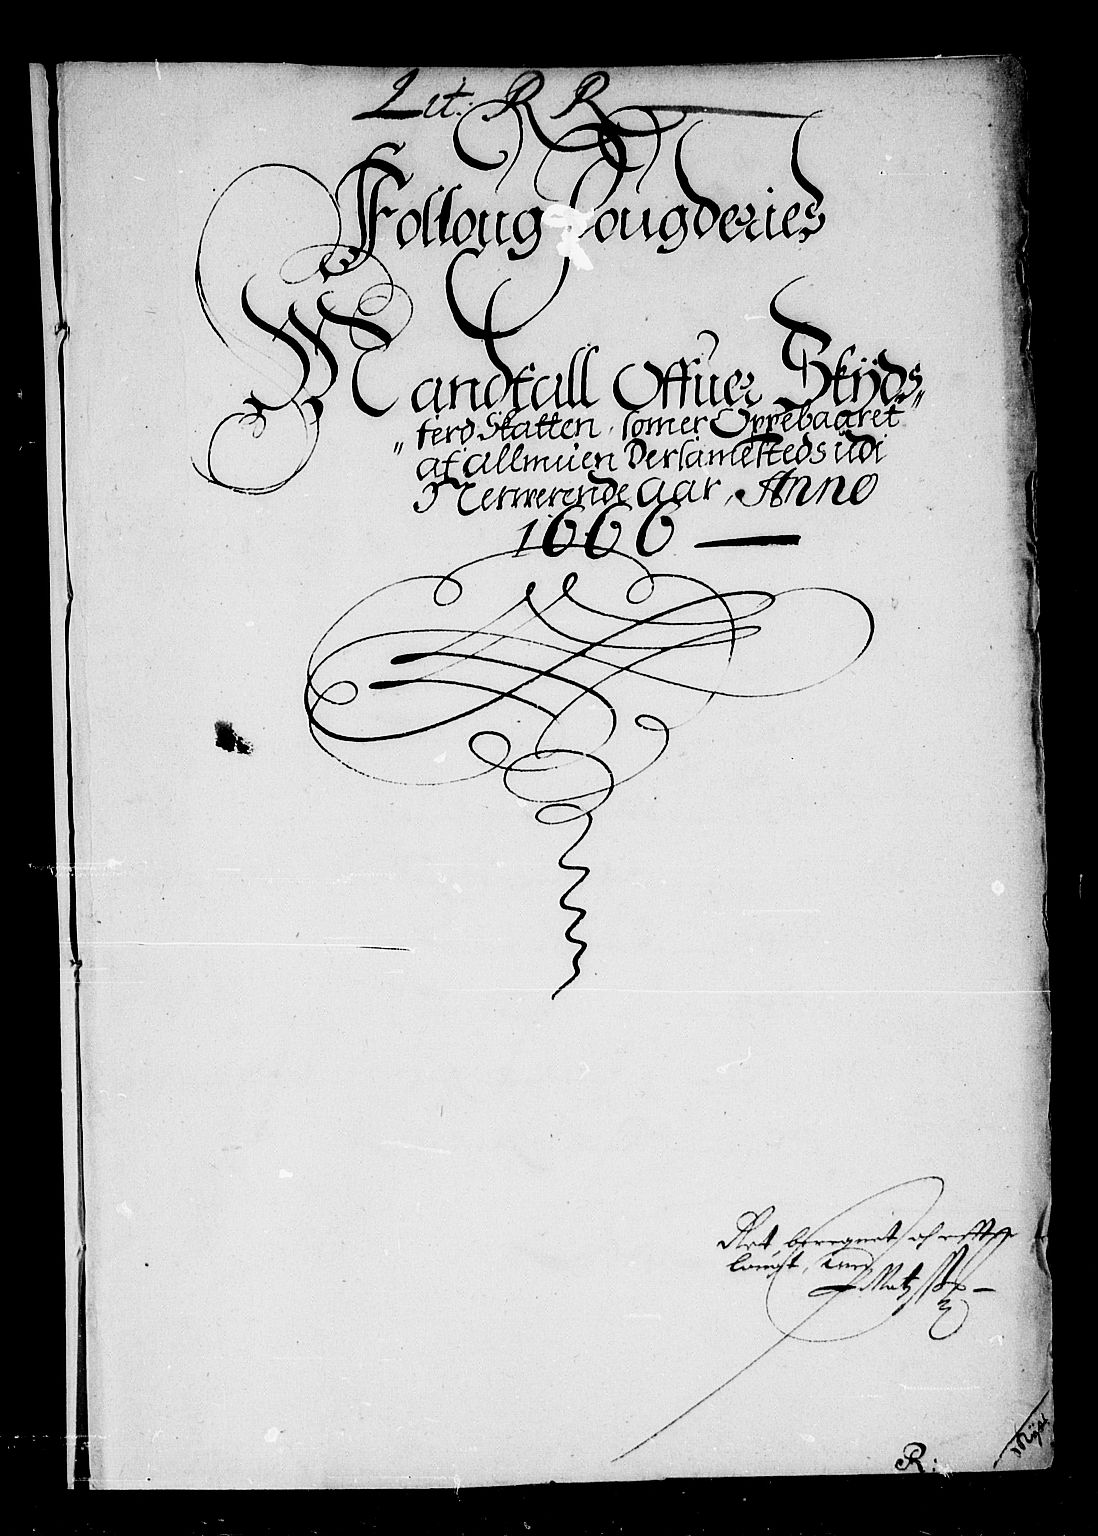 Lit: R R
Folloug Fougderies
Mandtall Offuer Skÿds„
„ ferd Skatten, som er Oppebaaret
af Allmuen Dersamesteds udi
Nerwerende Aar, Anno
1666 —
Ret beregnet och
langt,
Matz
R: